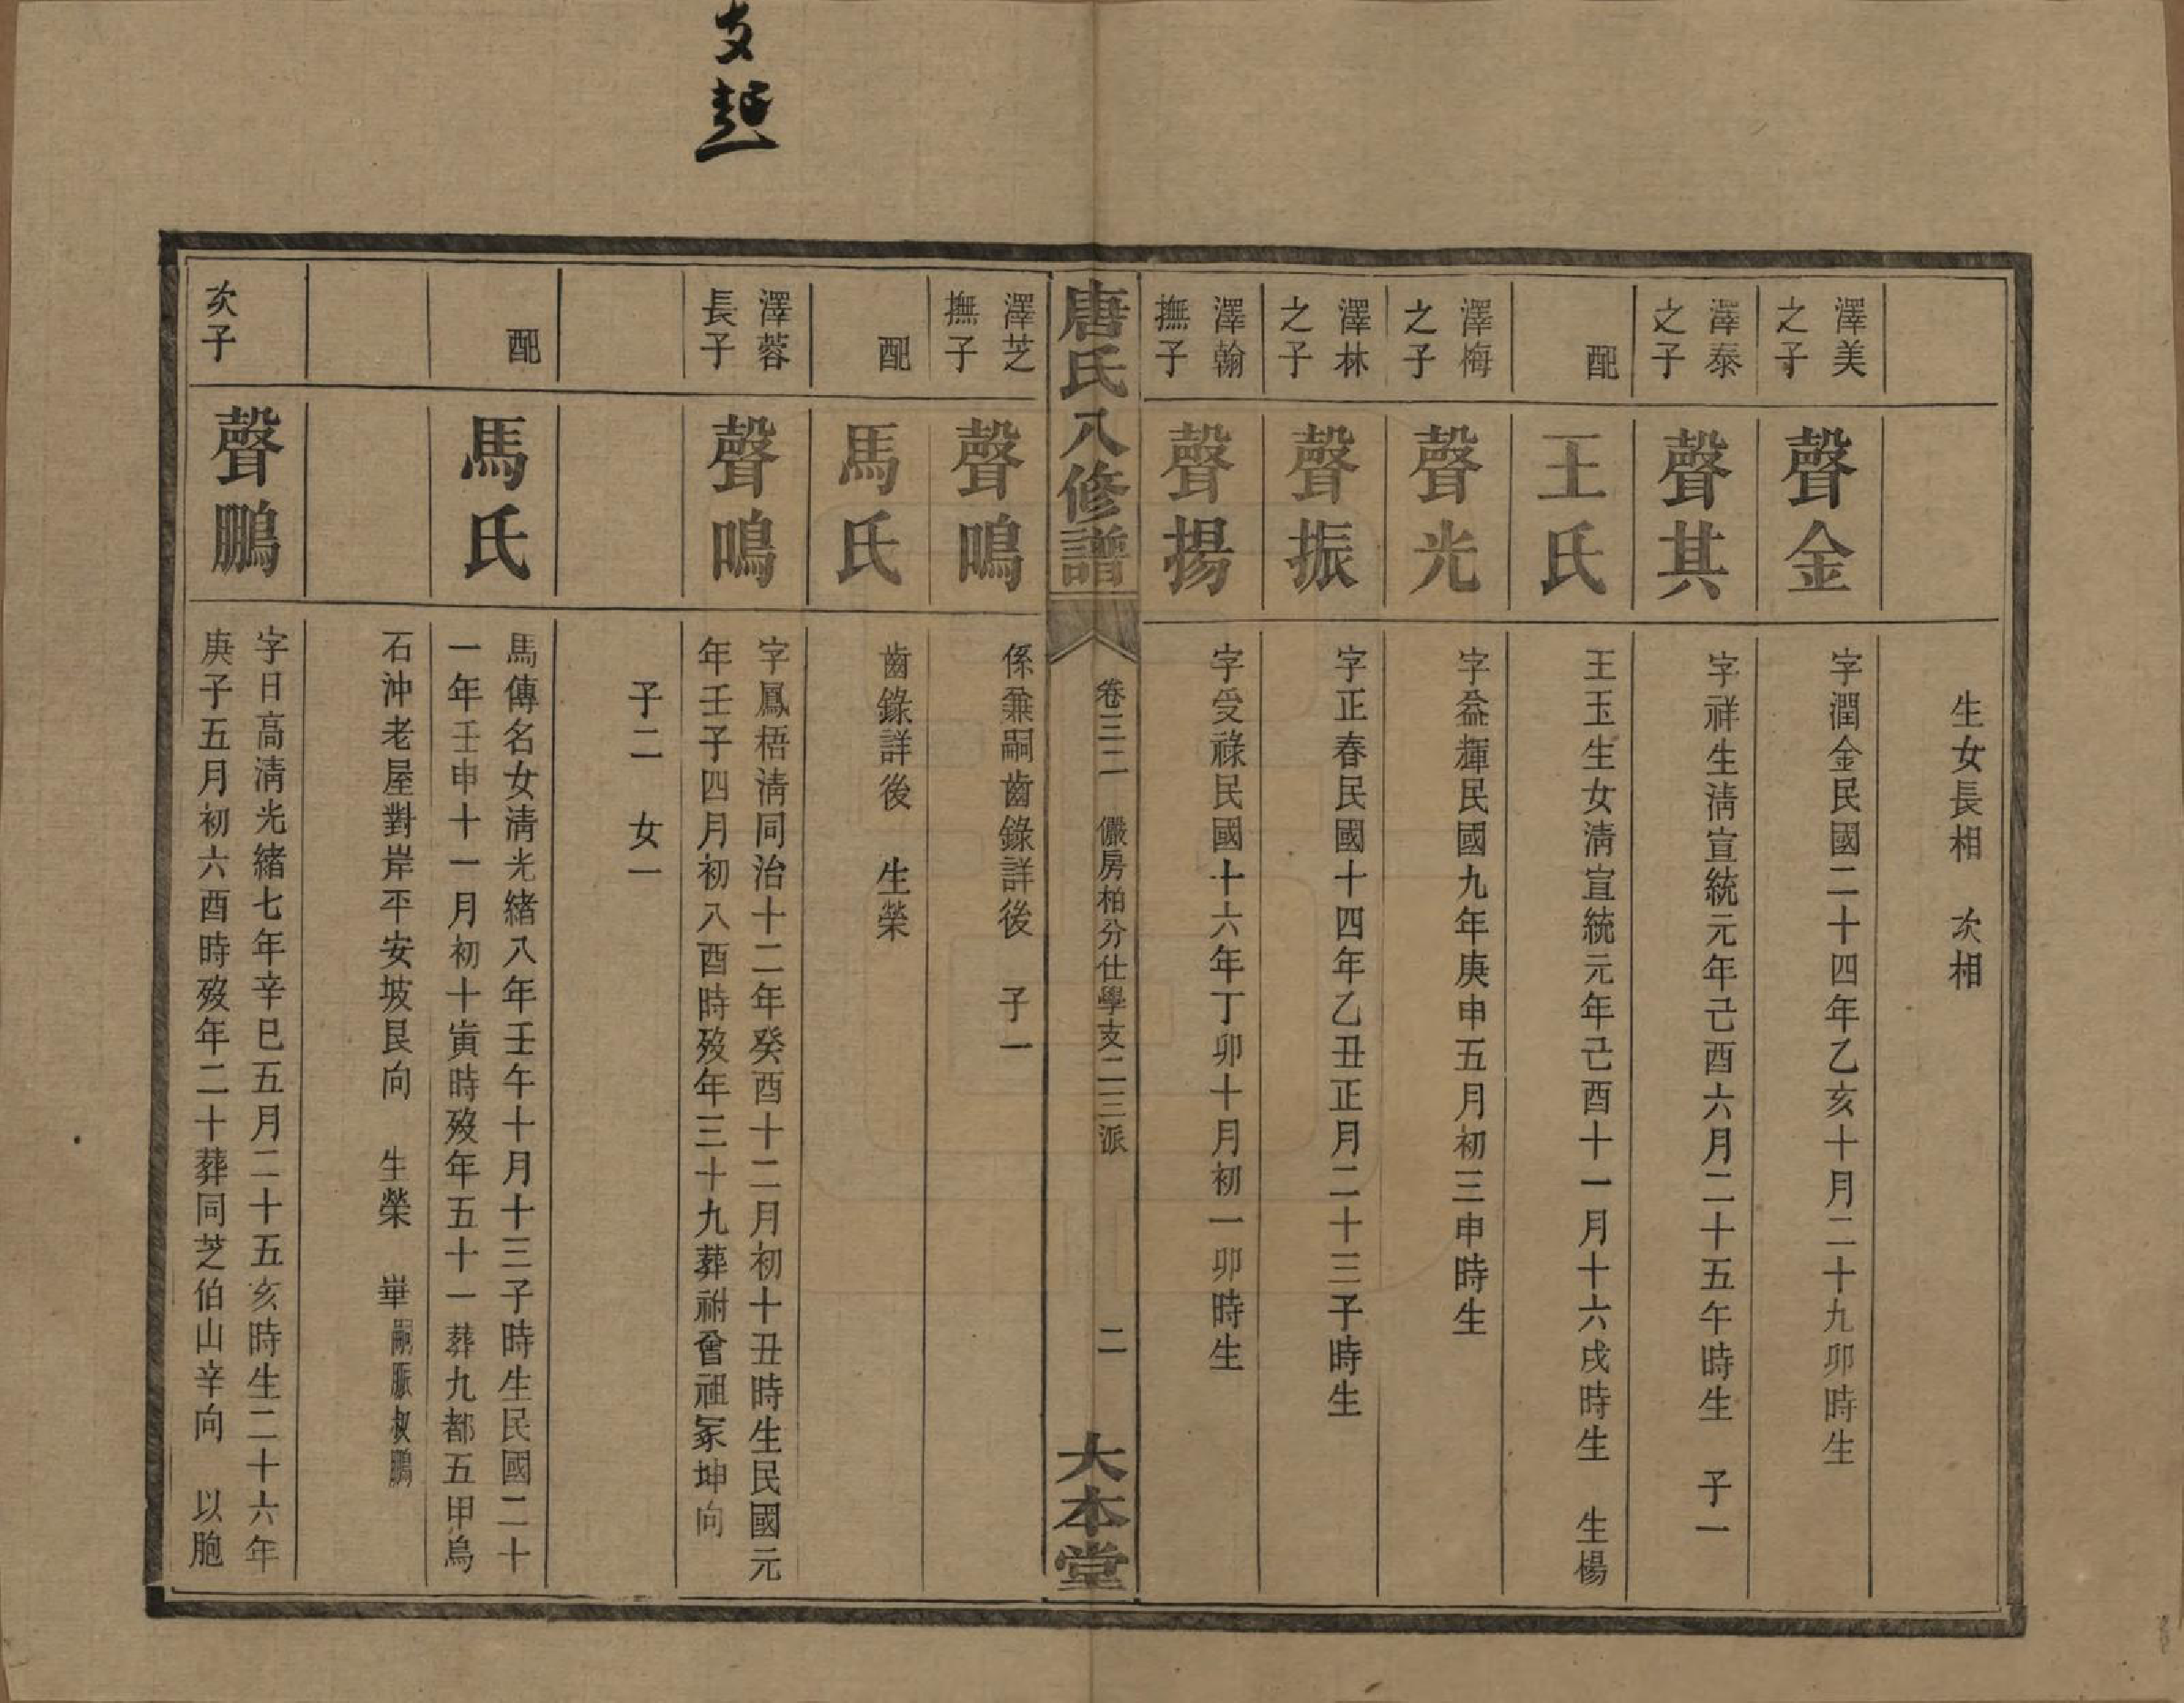 支起
生女長相　次相
澤美之子
聲金
字潤金民國二十四年乙亥十月二十九卯時生
澤泰之子
聲其
字祥生淸宣統元年己酉六月二十五午時生　子一
配
王氏
王玉生女淸宣統元年己酉十一月十六戌時生　生楊
澤梅之子
聲光
字益輝民國九年庚申五月初三申時生
澤林之子
聲振
字正春民國十四年乙丑正月二十三子時生
澤翰撫子
聲揚
字受祿民國十六年丁卯十月初一卯時生
唐氏八修譜
卷三二　儼房柏分仕學支二三派
二
大本堂
澤芝撫子
聲鳴
係兼嗣齒錄詳後　子一
配
馬氏
齒錄詳後　生榮
澤蓉長子
聲鳴
字鳳梧淸同治十二年癸酉十二月初十丑時生民國元
年壬子四月初八酉時歿年三十九葬祔曾祖冢坤向
子二　女一
配
馬氏
馬傳名女淸光緖八年壬午十月十三子時生民國二十
一年壬申十一月初十寅時歿年五十一葬九都五甲烏
石沖老屋對岸平安坡艮向　生榮　崋嗣胝叔鵬
次子
聲鵬
字日高淸光緖七年辛巳五月二十五亥時生二十六年
庚子五月初六酉時歿年二十葬同芝伯山辛向　以胞